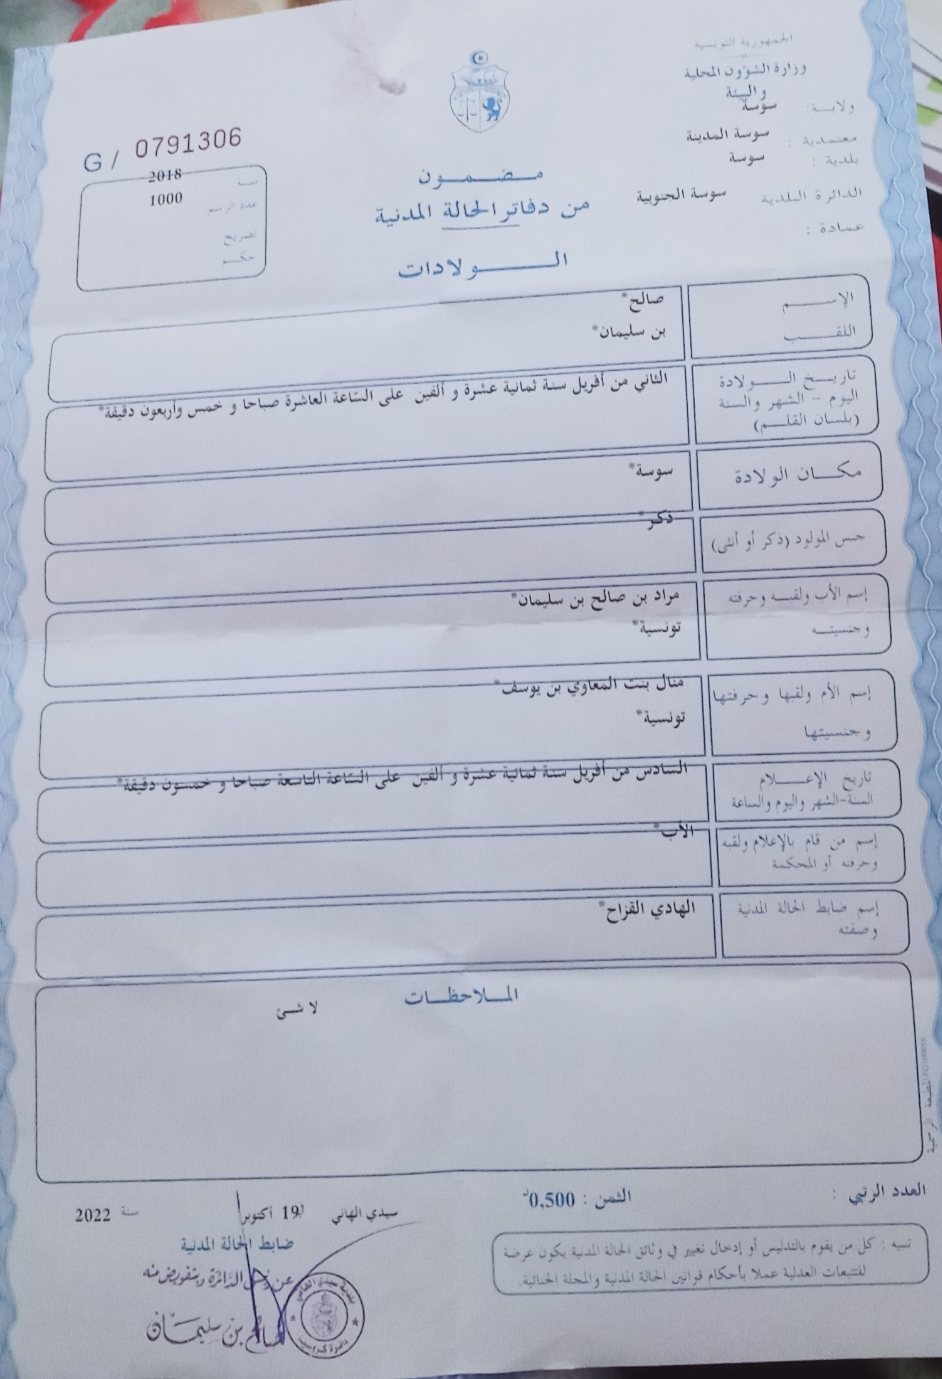 الجمهورية التونسية
وزارة الشؤون المحلية
والبيئة
ولاية : سوسة
معتمدية : سوسة المدينة
بلدية : سوسة
الدائرة البلدية سوسة الجنوبية
عمادة :
G / 0791306
سنة 2018
عدد الرسم 1000
تصريح
حكم
مضمون
من دفاتر الحالة المدنية
الولادات
الإسم صالح*
اللقب بن سليمان*
تاريخ الولادة
اليوم - الشهر والسنة
(بلسان القلم)
الثاني من أفريل سنة ثمانية عشرة و ألفين على الساعة العاشرة صباحا و خمس وأربعون دقيقة*
مكان الولادة سوسة*
جنس المولود (ذكر أو أنثى) ذكر*
إسم الأب ولقبه وحرفته مراد بن صالح بن سليمان*
وجنسيته تونسية*
إسم الأم ولقبها وحرفتها منال بنت المعاوي بن يوسف*
وجنسيتها تونسية*
تاريخ الإعلام
السنة-الشهر واليوم والساعة
السادس من أفريل سنة ثمانية عشرة و ألفين على الساعة التاسعة صباحا و خمسون دقيقة*
إسم من قام بالإعلام ولقبه
وحرفته أو المحكمة
الأب*
إسم ضابط الحالة المدنية
وصفته
الهادي القزاح*
الملاحظات
لا شئ
المطبعة الرسمية
العدد الرتبي :
الثمن : 0,500د
سيدي الهاني 19 أكتوبر سنة 2022
ضابط الحالة المدنية
صالح بن سليمان
بلدية سيدي الهاني
تنبيه : كل من يقوم بالتدليس أو إدخال تغيير في وثائق الحالة المدنية يكون عرضة
للتتبعات العدلية عملا بأحكام قوانين الحالة المدنية والمجلة الجنائية.